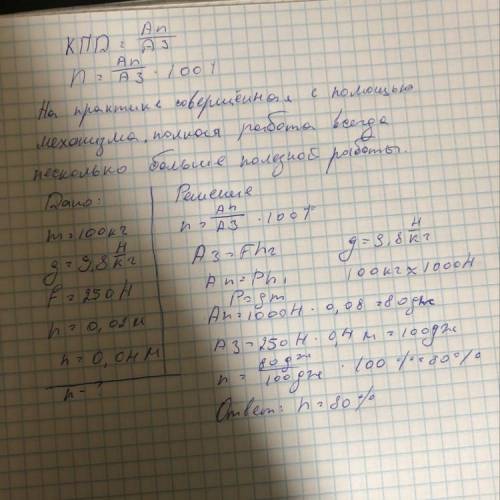 КПД = Ап/Аз
n = Ап/Аз · 100%
На практике совершённая с помощью
механизма, полная работа всегда
несколько больше полезной работы.
Дано:
m = 100 кг
g = 9,8 Н/кг
F = 250 Н
h = 0,08 м
h = 0,04 м
h - ?
Решение
n = Ап/Аз · 100%
Аз = Fh2
g = 9,8 Н/кг
Ап = Ph1
100 кг × 1000 Н
P = gm
Ап = 1000 Н · 0,08 = 80 дж
Аз = 250 Н · 0,4 м = 100 дж
n = 80 дж/100 дж · 100% = 80%
Ответ: n = 80%